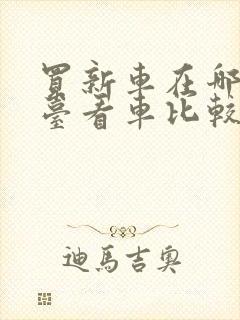 買新車在哪
臺看車比較
迪馬吉奧